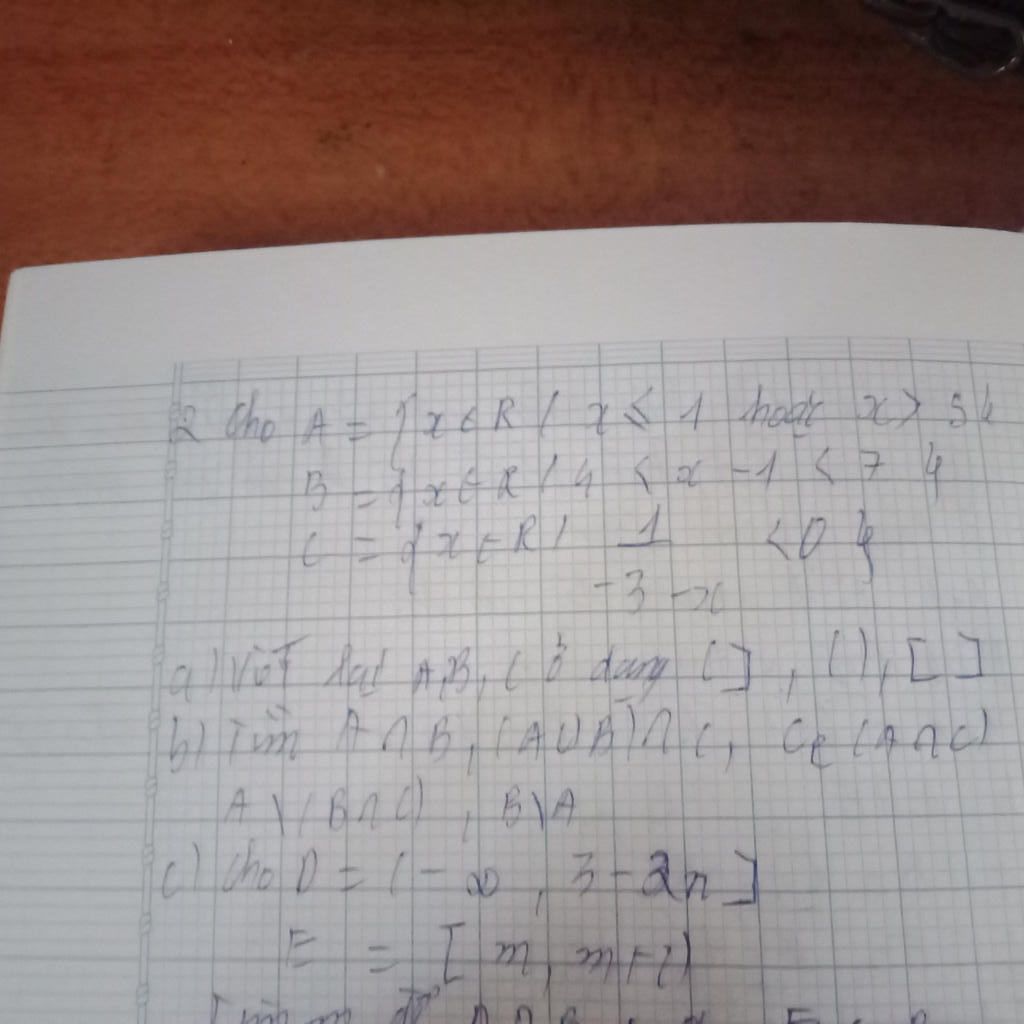 2 Cho A = { x ∈ R / x ≤ 1 hoặc x > 5 }
B = { x ∈ R / 4 < x - 1 < 7 }
C = { x ∈ R / 1
-3 - x < 0 }
a) Viết lại A, B, C ở dạng ( ] , ( ), [ ]
b) Tìm A ∩ B, (A ∪ B) ∩ C, C (A ∩ C)
A \ (B ∩ C) , B \ A
c) Cho D = ( - ∞ , 3 - 2n ]
E = [ m, m + )
m để